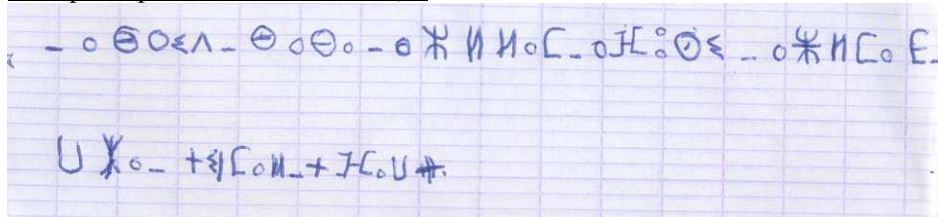 - ⴰⴱⵔⵉⴷ - ⴱⴰⴱⴰ - ⴰⵣⵍⵍⴰⵎ - ⴰⴼⵓⵙⵉ - ⴰⵣⵍⵎⴰⴹ -
ⵡⵣⴰ - ⵜⵉⵎⴰⵍ - ⵜⴼⴰⵡⵜ.